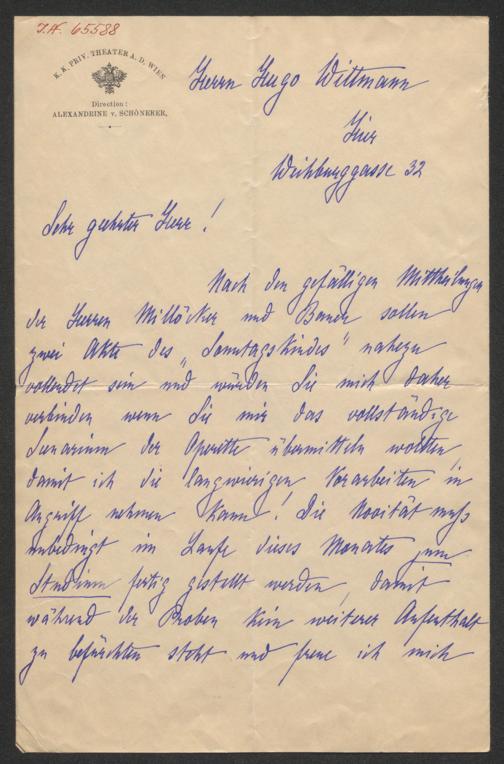 I.N. 65588
K. K. PRIV. THEATER A. D. WIEN
Direction:
ALEXANDRINE v. SCHÖNERER.
Herrn Hugo Wittmann
Hier
Weihburggasse 32
Sehr geehrter Herr!
Nach den gefälligen Mittheilungen
der Herren Millöcker und Bauer sollen
zwei Akte des „Sonntagskindes" nahezu
vollendet sein und würden Sie mich daher
verbinden wenn Sie mir das vollständige
Scenarium der Operette übermitteln wollten,
damit ich die langwierigen Vorarbeiten in
Angriff nehmen kann! Die Novität muß
unbedingt im Laufe dieses Monates zum
Studium fertig gestellt werden, damit
während der Proben kein weiterer Aufenthalt
zu befürchten steht und freue ich mich